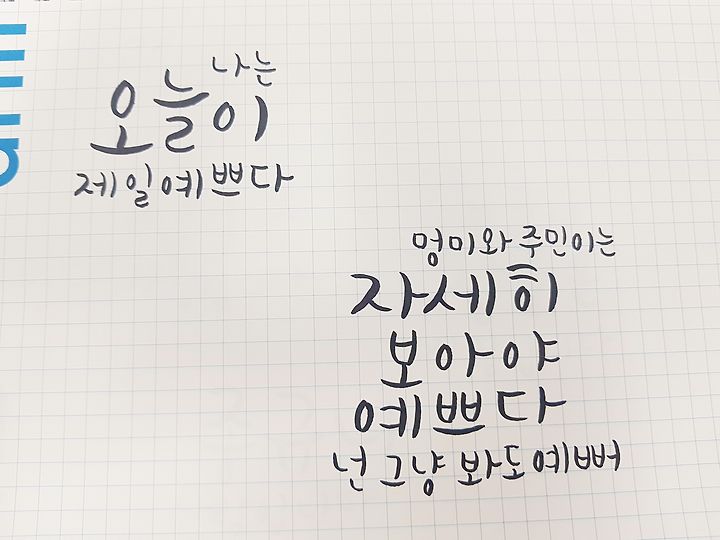 나는
오늘이
제일 예쁘다
멍미와 주민이는
자세히
보아야
예쁘다
넌 그냥 봐도 예뻐